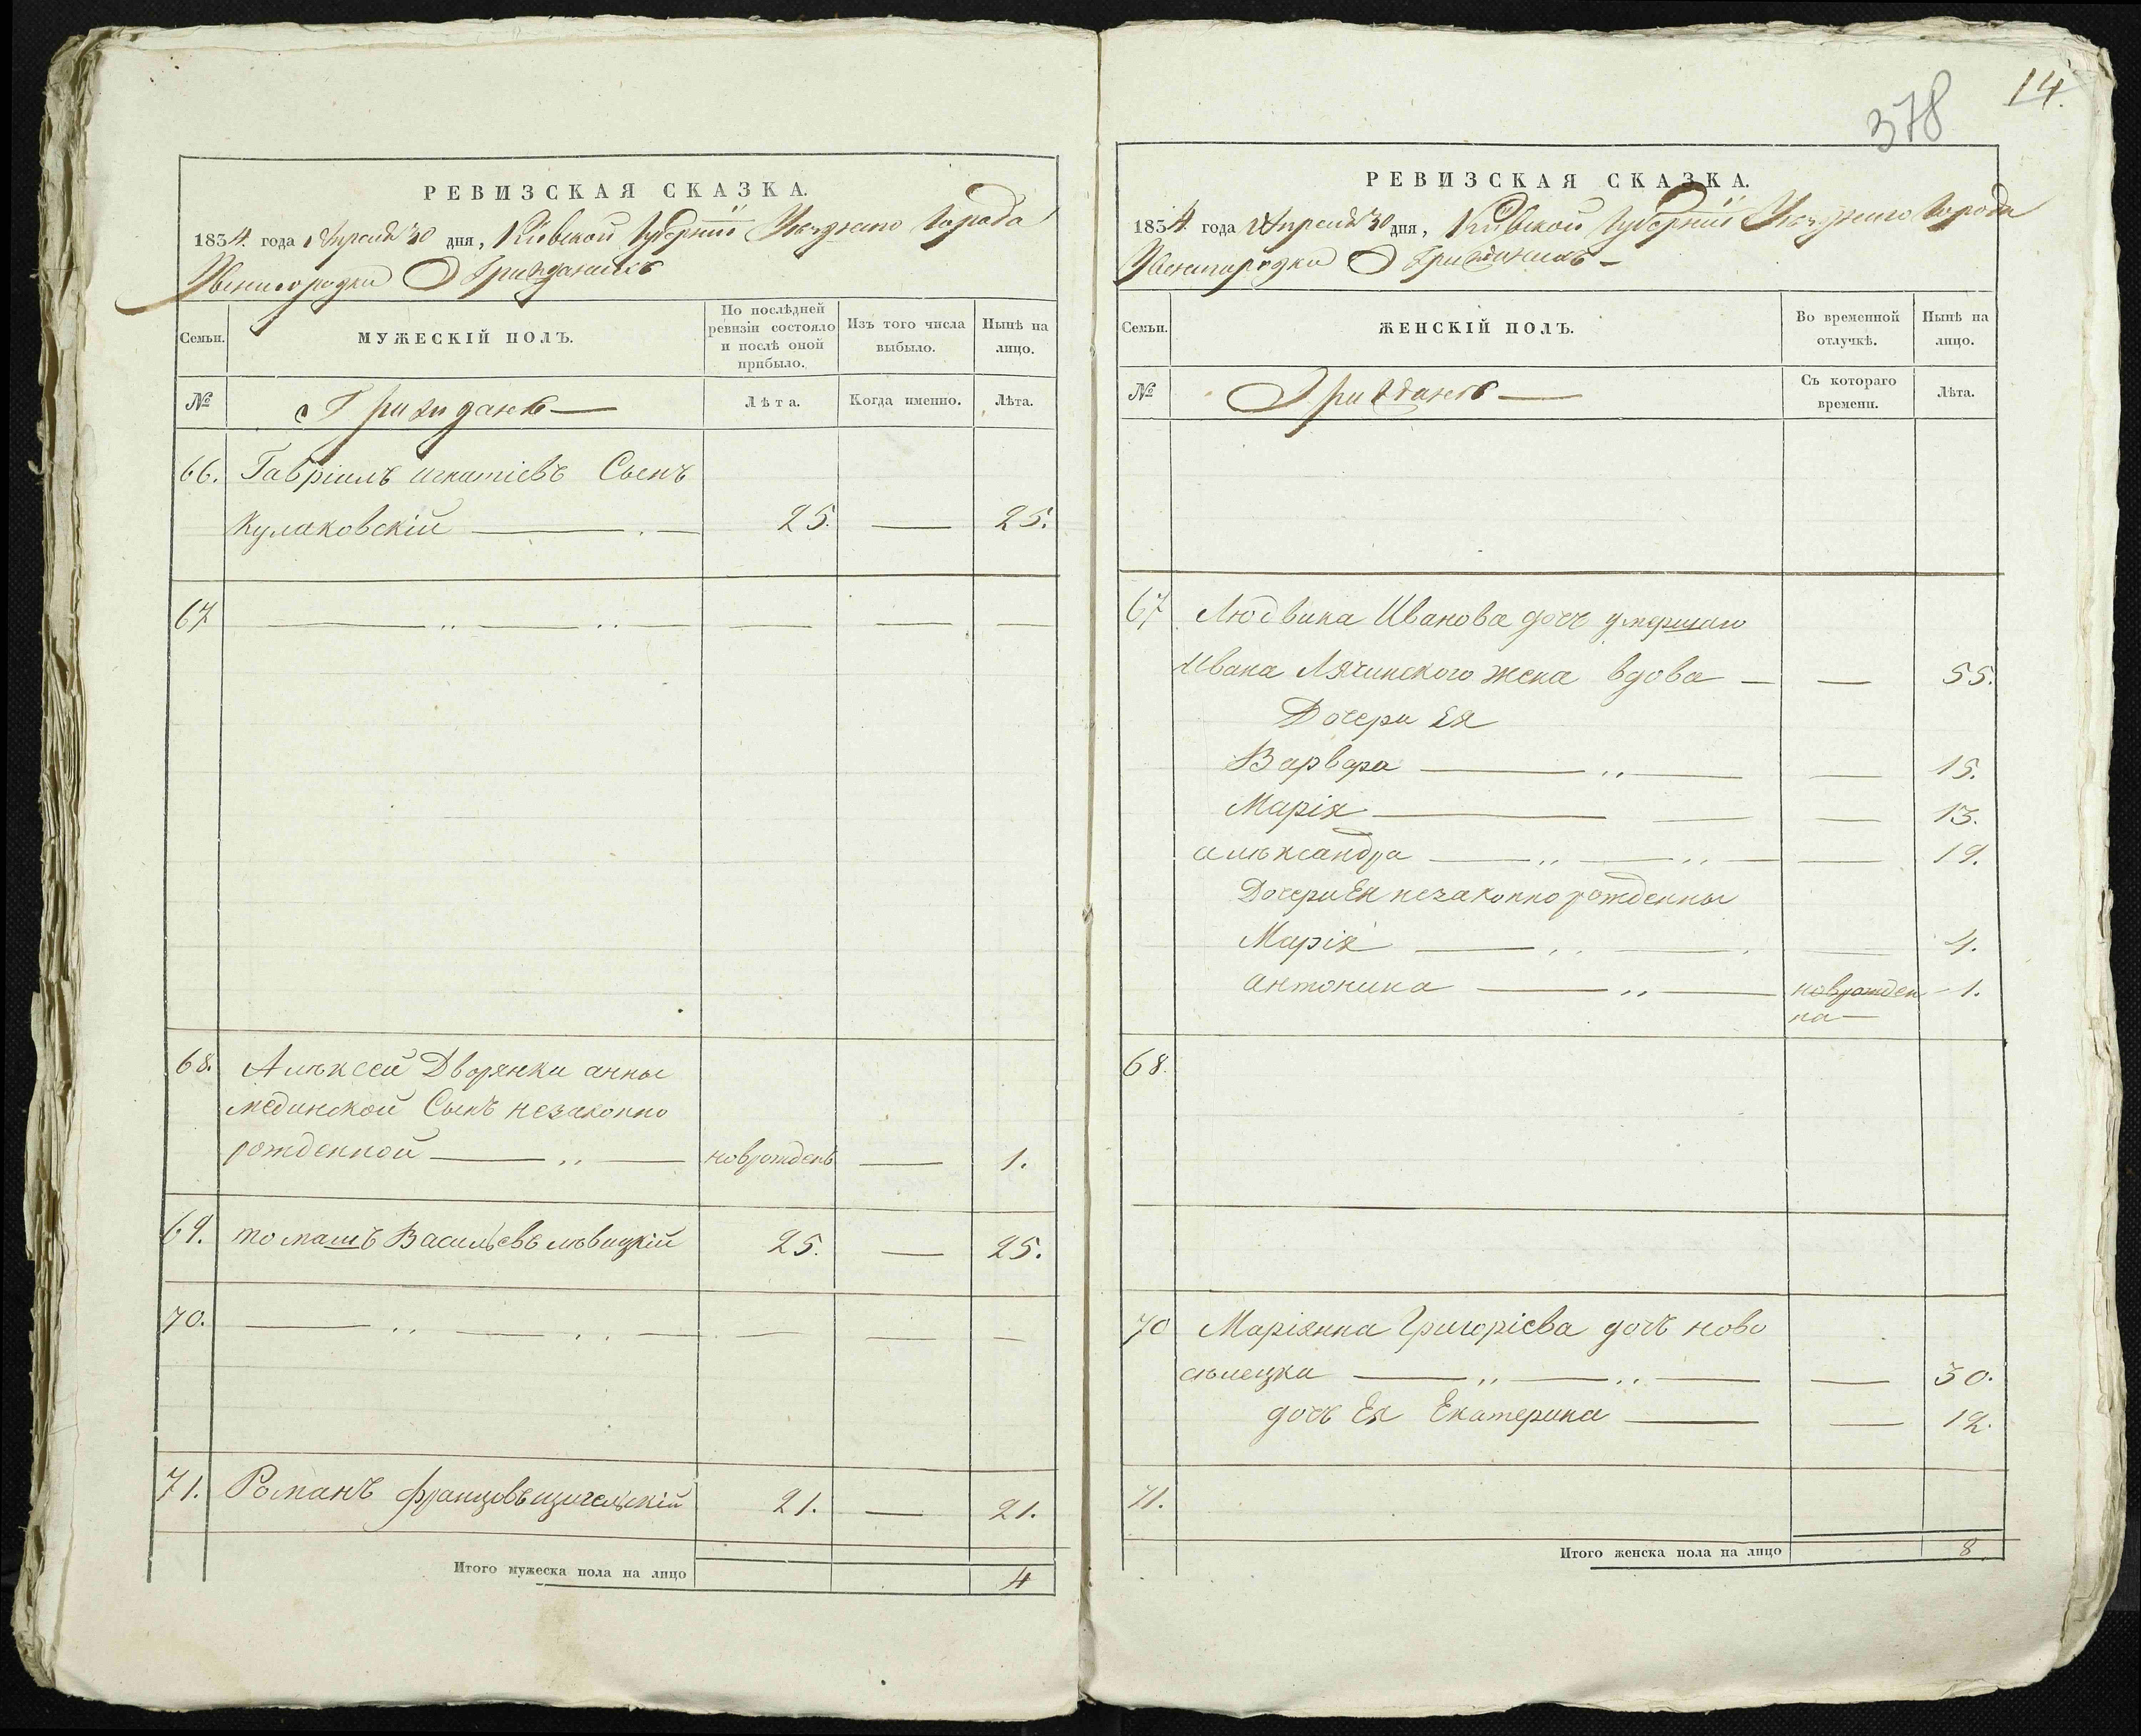 378
14.
РЕВИЗСКАЯ СКАЗКА.
1854. года Апреля 30 дня, Кіевской Губерніи Уезднаго Города
Звенигородки О Гражданахъ
Семьи.
МУЖЕСКІЙ ПОЛЪ.
По послѣдней ревизіи состояло и послѣ оной прибыло.
Изъ того числа выбыло.
Нынѣ на лицо.
№
Гражданъ —
Лѣта.
Когда именно.
Лѣта.
66. Гавріилъ игнатіевъ Сынъ
Кулаковскій — 25. — 25.
67 — — — —
68. Алѣксей Дворянки анны
мединской Сынъ незаконно
рожденной — новрожденъ — 1.
69. томашъ Васильевъ лѣвицкій 25. — 25.
70. — — — —
71. Романъ францовъ 21. — 21.
Итого мужеска пола на лицо 4
РЕВИЗСКАЯ СКАЗКА.
1854. года Апреля 30 дня, Кіевской Губерніи Уезднаго Города
Звенигородки О Гражданахъ —
Семьи.
ЖЕНСКІЙ ПОЛЪ.
Во временной отлучкѣ.
Нынѣ на лицо.
№
Гражданъ —
Съ котораго времени.
Лѣта.
67 Людвика Иванова дочъ умершаго
Ивана Лячинского жена вдова — — 55.
Дочери Ея
Варвара — — 15.
Марія — — 13.
алѣксандра — — 19.
Дочери Ея незаконно рожденны
Марія — — 4.
антонина — новрожден 1.
на —
68.
70 Маріянна Григоріева дочъ ново
сѣлецка — — 30.
дочъ Ея Екатерина — — 12.
71.
Итого женска пола на лицо 8